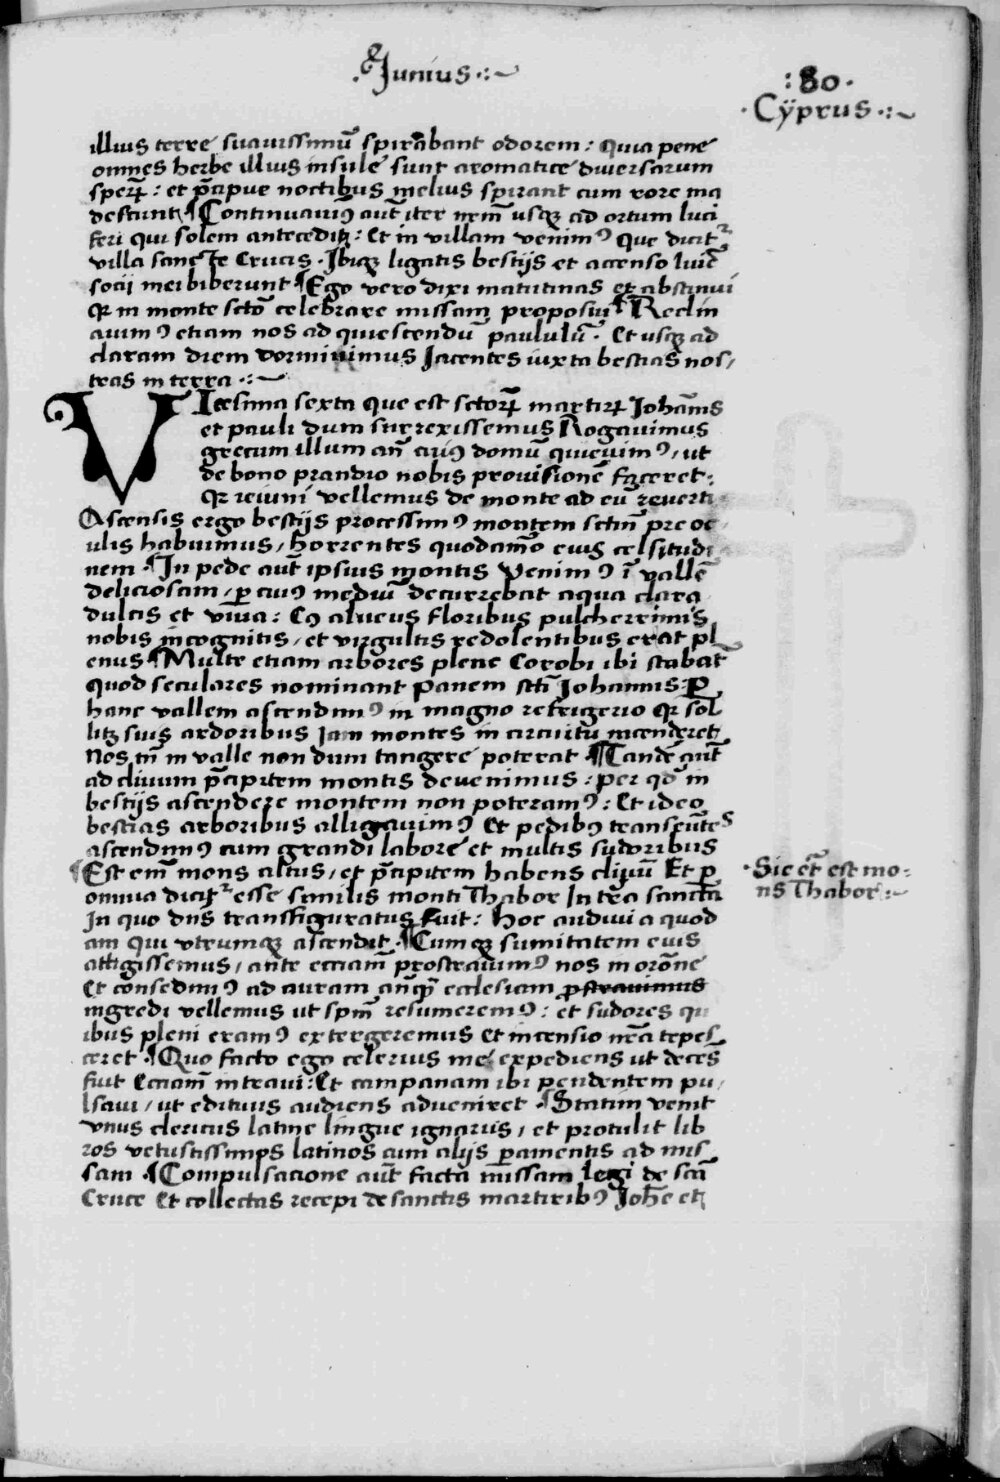 .Junius.:~
:80.
.Cÿprus.:~
illius terre suavissimū spirabant odorem: Quia pene
omnes herbe illius insule sunt aromatice diversarum
sperꝝ: et p̄cipue noctibus melius spirant cum rore ma
descunt ¶Continuavimꝰ aūt iter nrm̄ usqꝫ ad ortum luci
feri qui solem antecedit: Et in villam venimꝰ que dicitᷣ
villa sancte Crucis. Ibiqꝫ ligatis bestijs et accenso
socii mei biberunt ¶Ego vero dixi matutinas et abstinui
qꝛ in monte sctō celebrare missam proposui ¶Reclin
avimꝰ etiam nos ad quiescendū paululū. Et usqꝫ ad
claram diem dormivimus Jacentes iuxta bestias nos/
tras in terra.:~
VIcesima sexta que est sctorꝝ martirꝝ Johānis
et pauli dum surrexissemus Rogavimus
grecum illum añ cuiꝰ domū quievimꝰ, ut
de bono prandio nobis provisionē faceret:
qꝛ ieiuni vellemus de monte ad eū reverti
Ascensis ergo bestijs processimꝰ montem sctm̄ pre oc/
ulis habuimus, horrentes quodam̄o eius celsitudi
nem. ¶In pede aūt ipsius montis Venimꝰ ī vallē
deliciosam, ꝑ cuiꝰ mediū decurrebat aqua clara
dulcis et viva: Cꝰ alveus floribus pulcherrimis
nobis incognitis, et virgultis redolentibus erat pl
enus ¶Multe etiam arbores plene Corobi ibi stabāt
quod seculares nominant panem sctī Johannis: ꝑ
hanc vallem ascendimꝰ in magno refrigerio qꝛ sol
lꝫ suis ardoribus Jam montes in circuitu incenderet
Nos tn̄ in valle non dum tangere poterat ¶Tandē aūt
ad clivum p̄cipitem montis devenimus: per qd̄ in
bestijs ascendere montem non poteramꝰ: Et ideo
bestias arboribus alligavimꝰ Et pedibꝰ transeūtes
ascendimꝰ cum grandi labore et multis sudoribus
¶Est em̄ mons altus, et p̄cipitem habens clivū Et ꝑ
omnia dicitᷣ esse similis monti Thabor In trā sancta
In quo dn̄s transfiguratus fuit: Hoc audivi a quod
am qui utrumqꝫ ascendit. ¶Cumqꝫ sumitatem eius
attigissemus, ante eccām prostravimꝰ nos in orōne
Et consedimꝰ ad auram añqꝫ ecclesiam prostravimus
ingredi vellemus ut spm̄ resumeremꝰ: et sudores qu
ibus pleni eramꝰ extergeremus Et incensio nrā tepes
ceret ¶Quo facto ego celerius me expediens ut decēs
fuit Eccām intravi: Et campanam ibi pendentem pu/
lsavi, ut edituus audiens adveniret ¶Statim venit
unus clericus latine lingue ignarus, et protulit lib
ros vetustissimos latinos cum alijs paramentis ad mis
sam ¶Compulsacione aūt facta missam legi de scā
Cruce Et collectas recepi de sanctis martiribꝰ Johē et
.Sic etc̄ est mo=
ns Thabor:~